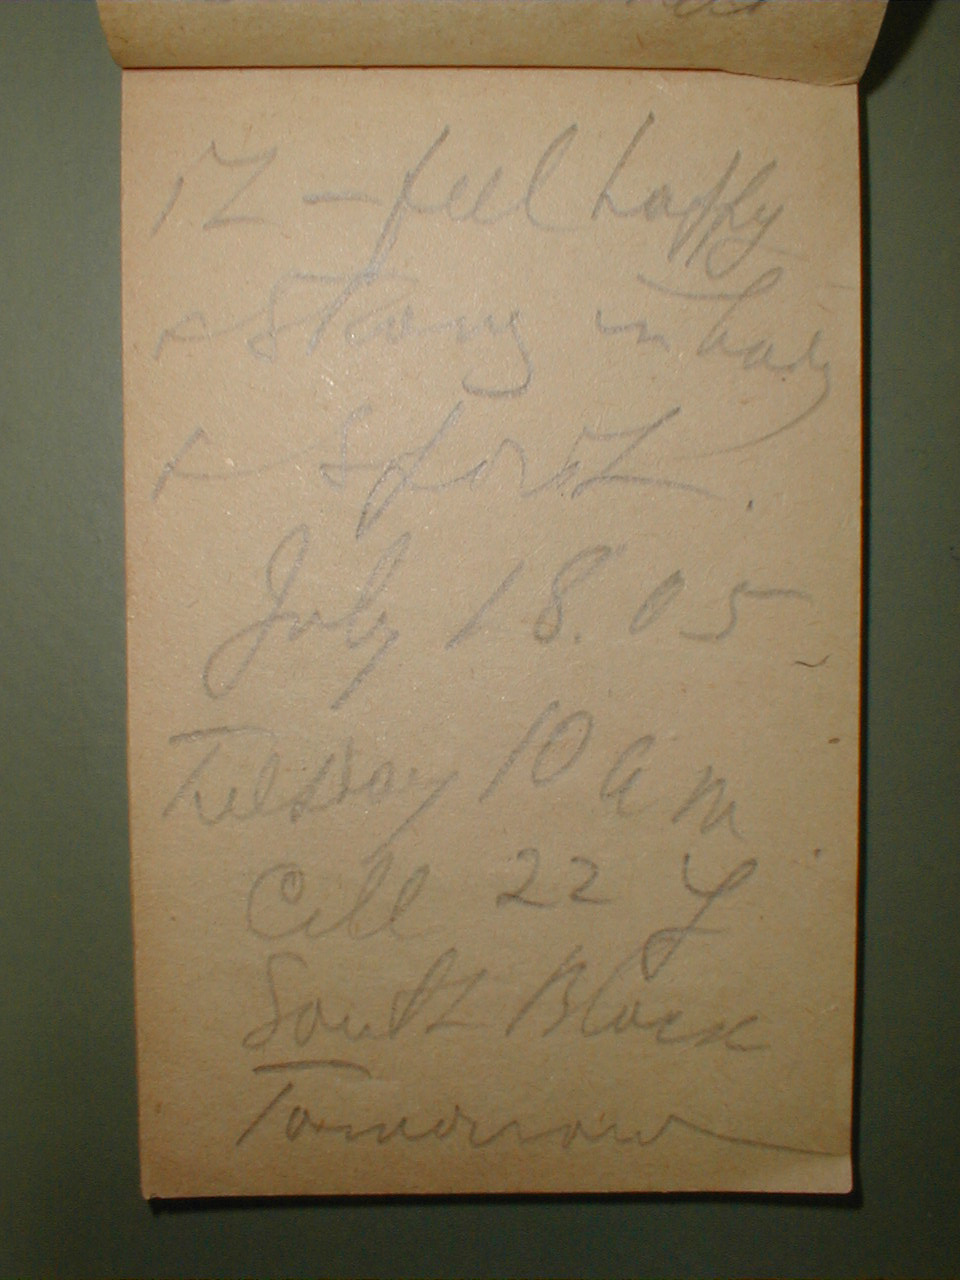 17 – feel happy
& strong in body
& spirit.
July 18. 05
Tuesday 10 a m
Cell 22 Y
South Block
Tomorrow